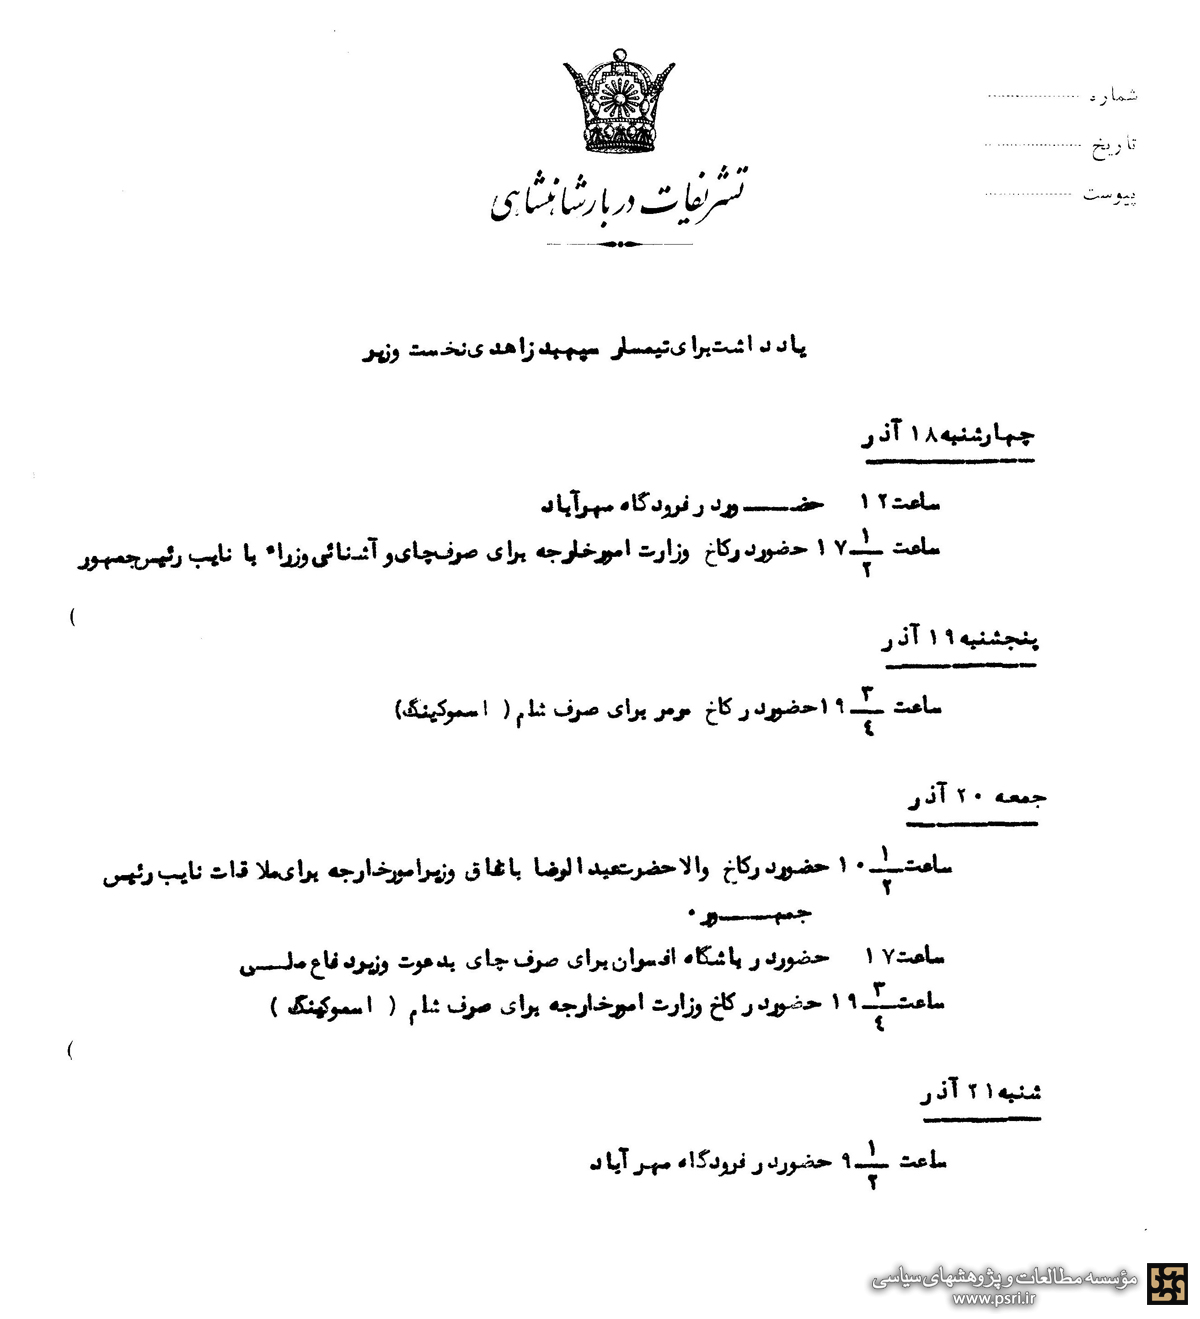 شماره
تاریخ
پیوست
تشریفات دربار شاهنشاهی
یادداشت برای تیمسار سپهبد زاهدی نخست وزیر
چهارشنبه ۱۸ آذر
ساعت ۱۲ حضـــور در فرودگاه مهرآباد
ساعت ۱۷ ۱/۲ حضور در کاخ وزارت امور خارجه برای صرف چای و آشنائی وزراء با نایب رئیس جمهور
(
پنجشنبه ۱۹ آذر
ساعت ۱۹ ۳/۴ حضور در کاخ مرمر برای صرف شام ( اسموکینگ)
جمعه ۲۰ آذر
ساعت ۱۰ ۱/۲ حضور در کاخ والاحضرت عبدالرضا باتفاق وزیر امور خارجه برای ملاقات نایب رئیس
جمهـــور ۰
ساعت ۱۷ حضور در باشگاه افسران برای صرف چای بدعوت وزیر دفاع ملـی
ساعت ۱۹ ۳/۴ حضور در کاخ وزارت امور خارجه برای صرف شام ( اسموکینگ )
(
شنبه ۲۱ آذر
ساعت ۹ ۱/۲ حضور در فرودگاه مهرآباد
مؤسسه مطالعات و پژوهشهای سیاسی
www.psri.ir